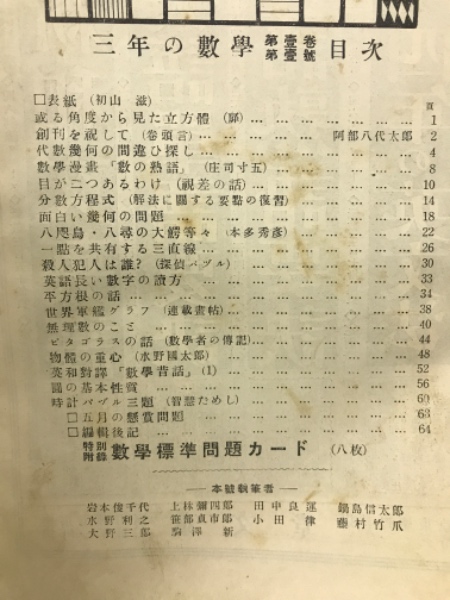 三年の數學 第壹卷 第壹號 目次
頁
□表紙 (初山 滋)
或る角度から見た立方體 (扉) … … … … … … 1
創刊を祝して (卷頭言) … … … … 阿部八代太郎 2
代數幾何の間違ひ探し … … … … … … … 4
數學漫畫「數の熟語」(庄司寸五) … … … … … 8
目が二つあるわけ (視差の話) … … … … … … 10
分數方程式 (解法に關する要點の復習) … … … … 14
面白い幾何の問題 … … … … … … … … 18
八咫烏・八尋の大鰐等々 (本多秀彥) … … … … 22
一點を共有する三直線 … … … … … … … 26
殺人犯人は誰? (探偵パヅル) … … … … … 30
英語長い數字の讀方 … … … … … … … 33
平方根の話 … … … … … … … … … 34
世界軍艦グラフ (連載畫帖) … … … … … … 38
無理數のこと … … … … … … … … 40
ピタゴラスの話 (數學者の傳記) … … … … … 44
物體の重心 (水野國太郎) … … … … … … 48
英和對譯「數學昔話」(1) … … … … … … 52
圓の基本性質 … … … … … … … … 56
時計パヅル三題 (智慧だめし) … … … … … 60
□五月の懸賞問題 … … … … … … … 63
□編輯後記 … … … … … … … … 64
特別附錄 數學標準問題カード (八枚)
— 本號執筆者 —
岩本俊千代 上林彌四郎 田中良運 鍋島信太郎
水野利之 笹部貞市郎 小田律 藤村竹爪
大野三郎 駒澤新